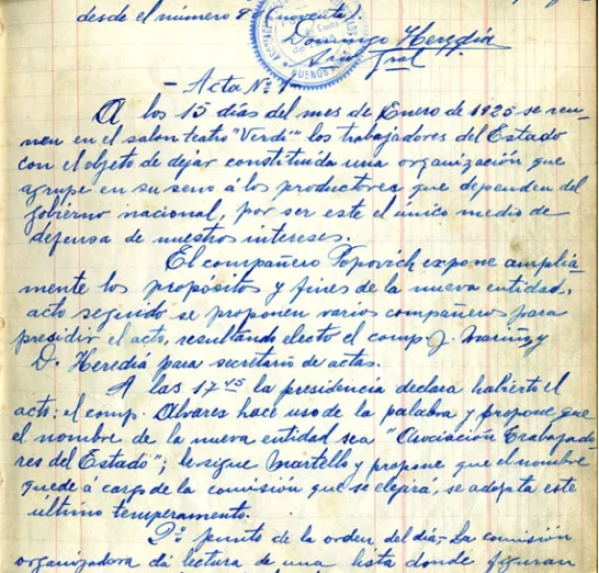 desde el número 90 (noventa).
Domingo Heredia
BUENOS
- Acta Nº 1 -
A los 15 días del mes de Enero de 1925 se reu-
nen en el salon teatro "Verdi" los trabajadores del Estado
con el objeto de dejar constituída una organización que
agrupe en su seno á los productores que dependen del
gobierno nacional, por ser este el único medio de
defensa de nuestros intereses.
El compañero Popovich expone amplia-
mente los propósitos y fines de la nueva entidad,
acto seguido se proponen varios compañeros para
presidir el acto, resultando electo el comp. J. y
D. Heredia para secretario de actas.
A las 17 45 la presidencia declara habierto el
acto; el comp. Alvares hace uso de la palabra y propone que
el nombre de la nueva entidad sea "Asociación Trabajado-
res del Estado"; le sigue Martello y propone que el nombre
quede á cargo de la comisión que se elejirá, se adopta este
último temperamento.
2º punto de la orden del día.- La comisión
organizadora dá lectura de una lista donde figuran